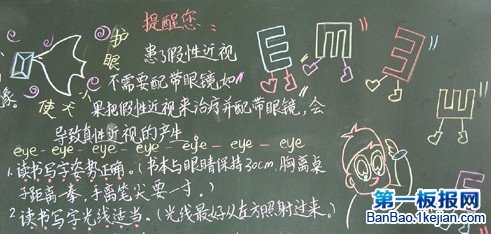 提醒您:
护眼使
患了假性近视
不需要配带眼镜,如
果把假性近视来治疗并配带眼镜,会
导致真性近视的产生。
象。
eye - eye - eye - eye - eye - eye - eye
1.读书写字姿势正确。(书本与眼睛保持30cm,胸离桌
子距离一拳,手离笔尖要一寸。)
2.读书写字光线适当。(光线最好从左方照射过来。)
E
E
E
E
第一板报网
BanBao.1kejian.com